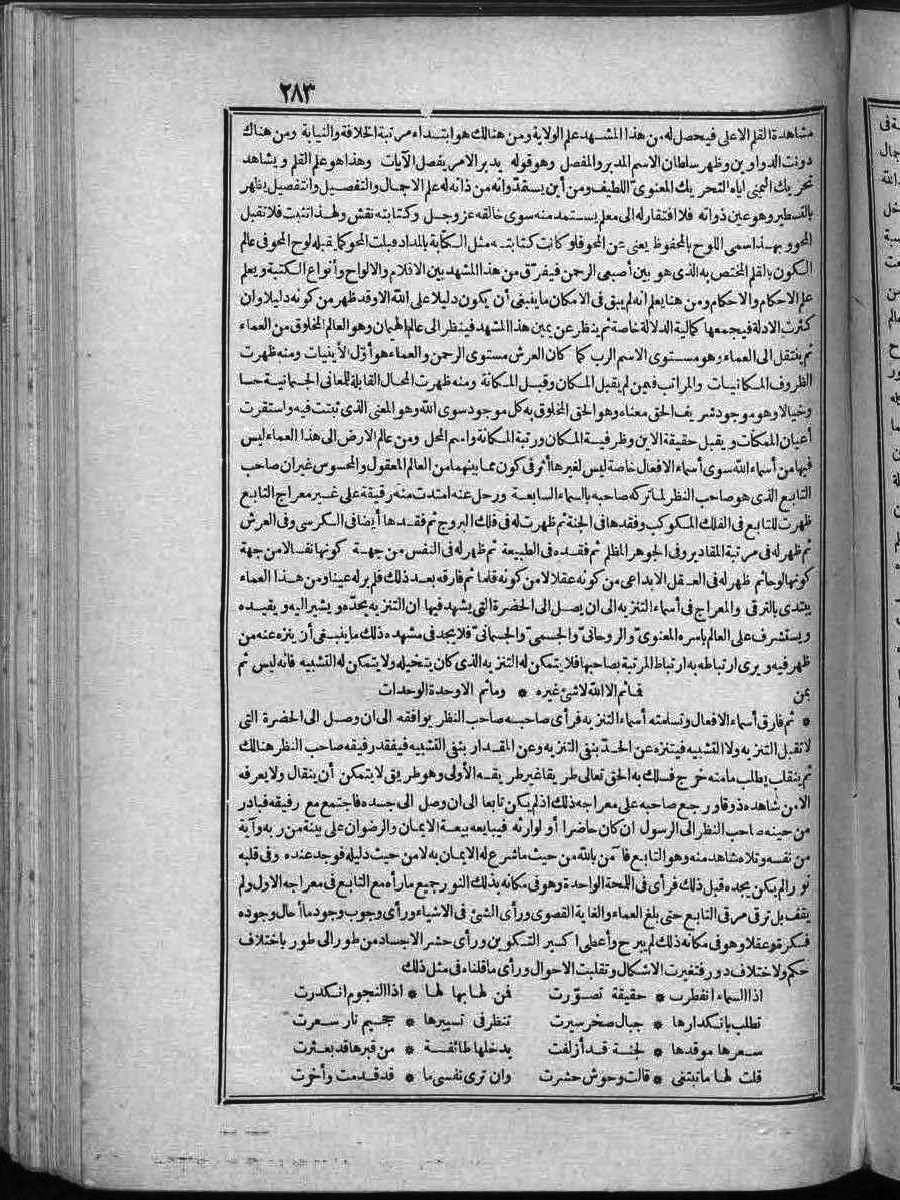 ٢٨٣
مشاهدة القلم الاعلى فيحصل له من هذا المشهد علم الولاية ومن هنالك هو ابتداء مرتبة الخلافة والنيابة ومن هناك
دونت الدواوين وظهر سلطان الاسم المدبر والمفصل وهو قوله يدبر الامر يفصل الآيات وهذا هو علم القلم ويشاهد
تحريك اليمنى اياه التحريك المعنوى اللطيف ومن أين يستمد وانه من ذاته له علم الاجمال والتفصيل والتفصيل يظهر
بالتسطير وهو عين ذواته فلا افتقار له الى معلم يستمد منه سوى خالقه عز وجل وكتابته نقش ولهذا تثبت فلا تقبل
المحو وبهذا سمى اللوح بالمحفوظ يعنى عن المحو فلو كانت كتابته مثل الكتابة بالمداد قبلت المحو كما يقبله لوح المحو فى عالم
الكون بالقلم المختص به الذى هو بين أصبعى الرحمن فيفرق من هذا المشهد بين الاقلام والالواح وأنواع الكتبة ويعلم
علم الاحكام والاحكام ومن هنا يعلم انه لم يبق فى الامكان ما ينبغى أن يكون دليلا على الله الا وقد ظهر من كونه دليلا وان
كثرت الادلة فيجمعها كمالية الدلالة خاصة ثم ينظر عن يمين هذا المشهد فينظر الى عالم الهيمان وهو العالم المخلوق من العماء
ثم ينتقل الى العماء وهو مستوى الاسم الرب كما كان العرش مستوى الرحمن والعماء هو أول الأينيات ومنه ظهرت
الظروف المكانيات والمراتب فيمن لم يقبل المكان وقبل المكانة ومنه ظهرت المحال القابلة للمعانى الجسمانية حسا
وخيالا وهو موجود شريف الحق معناه وهو الحق المخلوق به كل موجود سوى الله وهو المعنى الذى ثبتت فيه واستقرت
أعيان الممكنات ويقبل حقيقة الاين وظرفية المكان ورتبة المكانة واسم المحل ومن عالم الارض الى هذا العماء ليس
فيها من أسماء الله سوى أسماء الافعال خاصة ليس لغيرها أثر فى كون مما بينهما من العالم المعقول والمحسوس غير ان صاحب
التابع الذى هو صاحب النظر لما تركه صاحبه بالسماء السابعة ورحل عنه امتدت منه رقيقة على غير معراج التابع
ظهرت للتابع فى الفلك المكوكب وفقدها فى الجنة ثم ظهرت له فى فلك البروج ثم فقدها أيضا فى الكرسى وفى العرش
ثم ظهر له فى مرتبة المقادير وفى الجوهر المظلم ثم فقده فى الطبيعة ثم ظهر له فى النفس من جهة كونها نفسا لا من جهة
كونها لوحا ثم ظهر له فى العقل الابداعى من كونه عقلا لا من كونه قلما ثم فارقه بعد ذلك فلم ير له عينا ومن هذا العماء
يبتدى بالترقى والمعراج فى أسماء التنزيه الى ان يصل الى الحضرة التى يشهد فيها ان التنزيه يحده ويشير اليه ويقيده
ويستشرف على العالم باسره المعنوى والروحانى والجسمى والجسمانى فلا يجد فى مشهده ذلك ما ينبغى أن ينزه عنه من
ظهر فيه ويرى ارتباطه به ارتباط المرتبة بصاحبها فلا يتمكن له التنزيه الذى كان يتخيله ولا يتمكن له التشبيه فانه ليس ثم
بمن
فما ثم الا الله لا شئ غيره * وما ثم الا وحدة الوحدات
* ثم فارق أسماء الافعال وتسلمته أسماء التنزيه فرأى صاحبه صاحب النظر يوافقه الى ان وصل الى الحضرة التى
لا تقبل التنزيه ولا التشبيه فيتنزه عن الحد بنفى التنزيه وعن المقدار بنفى التشبيه فيفقد رفيقه صاحب النظر هنالك
ثم ينقلب يطلب ما منه خرج فسلك به الحق تعالى طريقا غير طريقه الأولى وهو طريق لا يتمكن أن ينقال ولا يعرفه
الا من شاهده ذوقا ورجع صاحبه على معراجه ذلك اذ لم يكن تابعا الى ان وصل الى جسده فاجتمع مع رفيقه فبادر
من حينه صاحب النظر الى الرسول ان كان حاضرا أو لوارثه فيبايعه بيعة الايمان والرضوان على بينة من ربه وآية
من نفسه وتلاه شاهد منه وهو التابع فآمن بالله من حيث ما شرع له الايمان به لا من حيث دليله فوجد عنده وفى قلبه
نورا لم يكن يجده قبل ذلك فرأى فى اللمحة الواحدة وهو فى مكانه بذلك النور جميع ما رأه مع التابع فى معراجه الاول ولم
يقف بل ترقى مرقى التابع حتى بلغ العماء والغاية القصوى ورأى الشئ فى الاشياء ورأى وجوب وجود ما أحال وجوده
فكرة وعقلا وهو فى مكانه ذلك لم يبرح وأعطى اكسير التكوين ورأى حشر الاجساد من طور الى طور باختلاف
حكم ولاختلاف دور فتغيرت الاشكال وتقلبت الاحوال ورأى ما قلناه فى مثل ذلك
اذا السماء انفطرت * حقيقة تصورت فمن لها بها لها * اذا النجوم انكدرت
تطلب بانكدارها * جبال صخر سيرت تنظر فى تسييرها * جحيم نار سعرت
سعرها موقدها * لجنة قد أزلفت يدخلها طائفة * من قبرها قد بعثرت
قلت لها ما تبتغى * قالت وحوش حشرت وان ترى نفسى ما * قد قدمت وأخرت